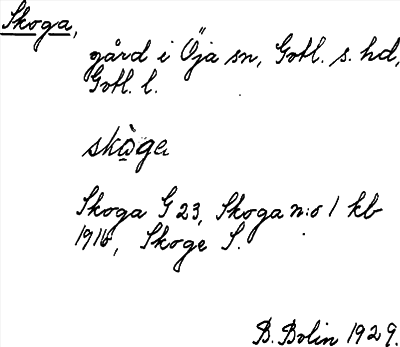 Skoga,
gård i Öja sn, Gotl. s. hd,
Gotl. l.
skò̱ga
Skoga G 23, Skoga n:o 1 kb
1916, Skoge S.
B. Bolin 1929.